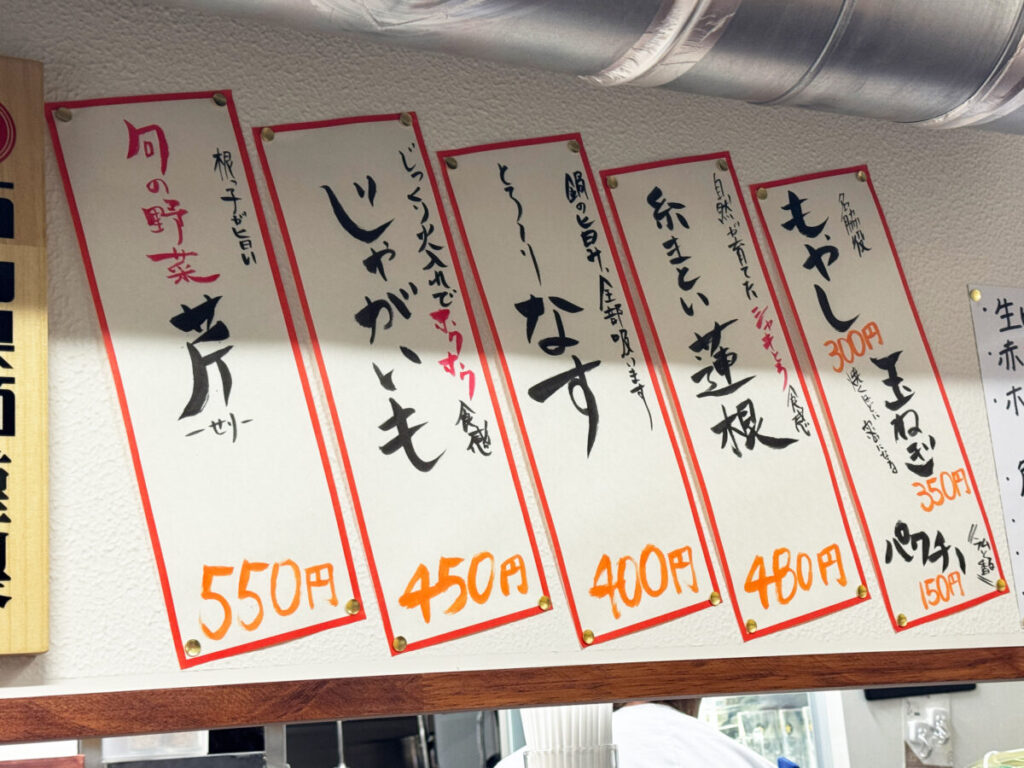 名脇役
もやし
300円
玉ねぎ
350円
パクチー
150円
自然が育てたシャキとろ食感
糸まとい蓮根
480円
鍋の旨み、全部吸います
とろ〜り
なす
400円
じっくり火入れでホクホク食感
じゃがいも
450円
根っ子が旨い
旬の野菜
芹
ーせりー
550円